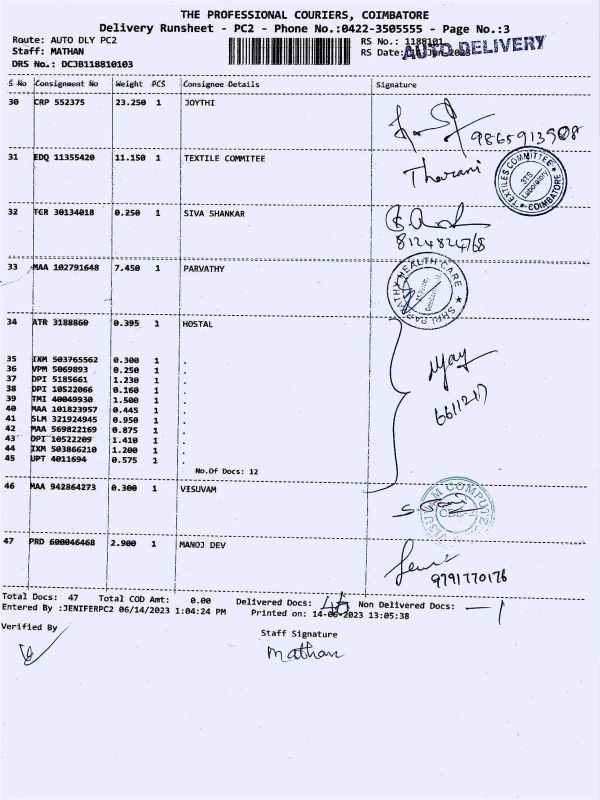 THE PROFESSIONAL COURIERS, COIMBATORE
Delivery Runsheet - PC2 - Phone No.:0422-3505555 - Page No.:3
Route: AUTO DLY PC2
Staff: MATHAN
DRS No.: DCJB118810103
RS No.: 1188101
RS Date:
AUTO DELIVERY
S No Consignment No Weight PCS Consignee Details Signature
30 CRP 552375 23.250 1 JOYTHI
9865913908
31 EDQ 11355420 11.150 1 TEXTILE COMMITEE
Tharani
TEXTILES COMMITTEE COIMBATORE
Laboratory
32 TCR 30134018 0.250 1 SIVA SHANKAR
8124824768
33 MAA 102791648 7.450 1 PARVATHY
SHRI PARVATHY HEALTH CARE
34 ATR 3188860 0.395 1 HOSTAL
35 IXM 503765562 0.300 1 .
36 VPM 5069893 0.250 1 .
37 DPI 5185661 1.230 1 .
38 DPI 10522066 0.160 1 .
39 TMI 40049930 1.500 1 .
40 MAA 101823957 0.445 1 .
41 SLM 321924945 0.950 1 .
42 MAA 569822169 0.875 1 .
43 DPI 10522209 1.410 1 .
44 IXM 503866210 1.200 1 .
45 UPT 4011694 0.575 1 .
No.Of Docs: 12
46 MAA 942864273 0.300 1 VISUVAM
47 PRD 600046468 2.900 1 MANOJ DEV
9791770176
Total Docs: 47 Total COD Amt: 0.00 Delivered Docs: 46 Non Delivered Docs: —1
Entered By :JENIFERPC2 06/14/2023 1:04:24 PM Printed on: 14-06-2023 13:05:38
Verified By
Staff Signature
Mathan